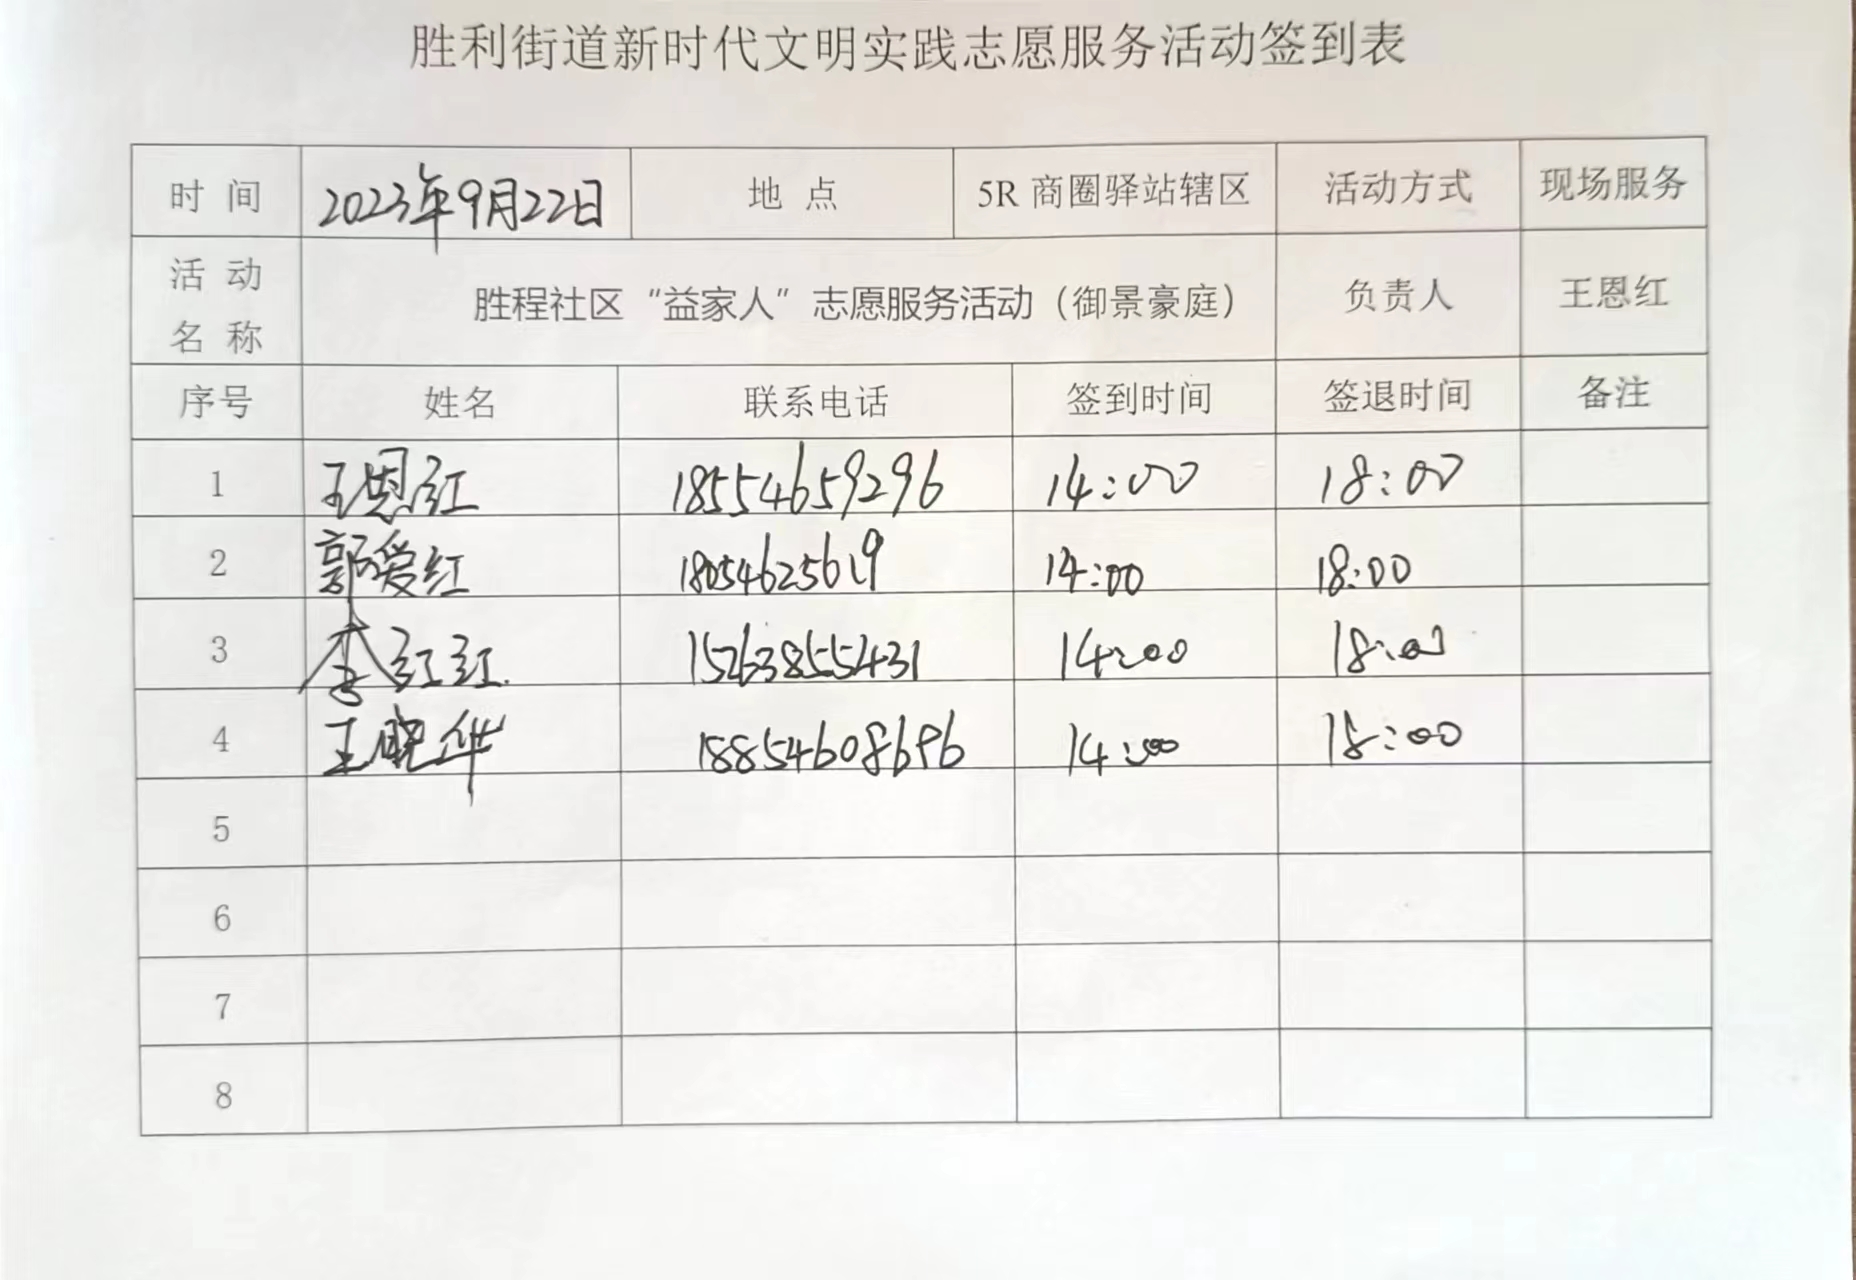 胜利街道新时代文明实践志愿服务活动签到表
时 间 2023年9月22日 地 点 5R 商圈驿站辖区 活动方式 现场服务
活 动
名 称 胜程社区“益家人”志愿服务活动（御景豪庭） 负责人 王恩红
序号 姓名 联系电话 签到时间 签退时间 备注
1 王恩红 18554659296 14:00 18:00
2 郭爱红 18054625619 14:00 18:00
3 李红红 15263855431 14:00 18:00
4 王晓华 18854608696 14:00 18:00
5
6
7
8